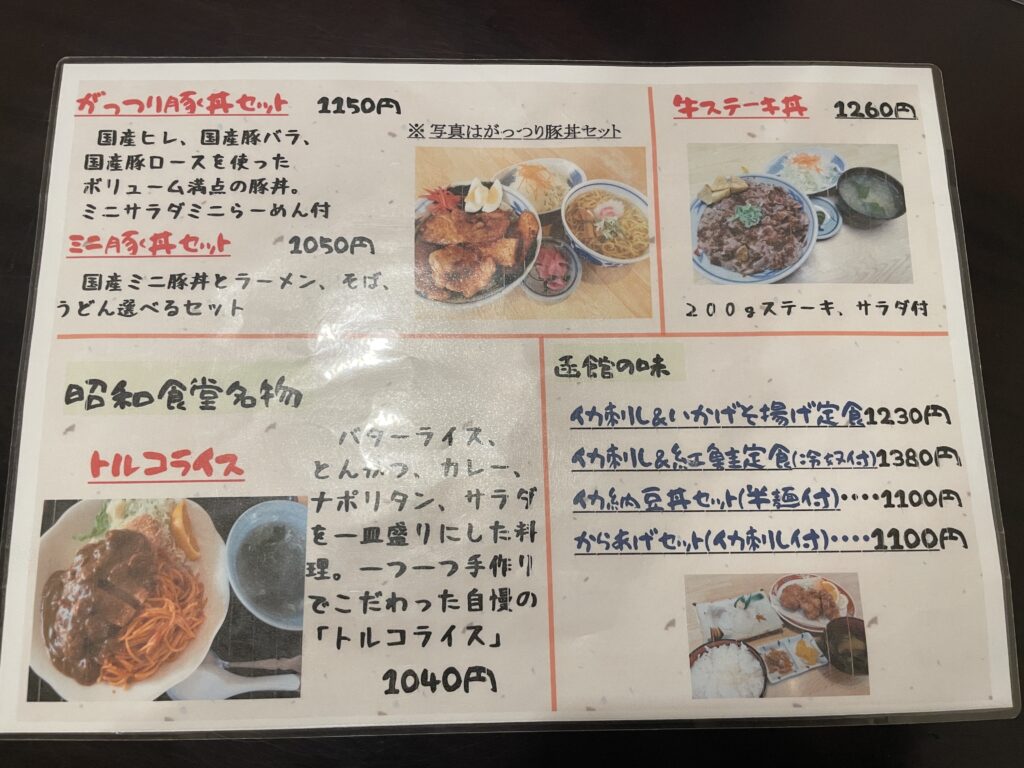 がっつり豚丼セット 1150円
国産ヒレ、国産豚バラ、
国産豚ロースを使った
ボリューム満点の豚丼。
ミニサラダミニらーめん付
※写真はがっつり豚丼セット
ミニ豚丼セット 1050円
国産ミニ豚丼とラーメン、そば、
うどん選べるセット
牛ステーキ丼 1260円
200gステーキ、サラダ付
昭和食堂名物
トルコライス
バターライス、
とんかつ、カレー、
ナポリタン、サラダ
を一皿盛りにした料
理。一つ一つ手作り
でこだわった自慢の
「トルコライス」
1040円
函館の味
イカ刺し&いかげそ揚げ定食1230円
イカ刺し&紅鮭定食(冷奴付)1380円
イカ納豆丼セット(半麺付)‥‥1100円
からあげセット(イカ刺し付)‥‥‥1100円